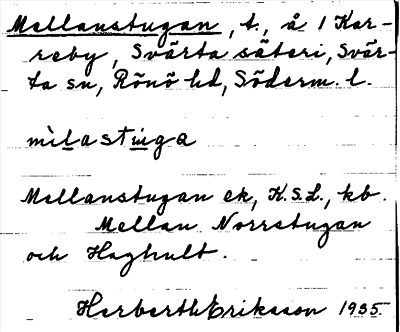 Mellanstugan, t., å 1 Kar-
reby, Svärta säteri, Svär-
ta sn, Rönö hd, Söderm. l.
mìlastiŋga
Mellanstugan ek, K.S.L., kb.
Mellan Norrstugan
och Haghult.
Herberth Eriksson 1935.